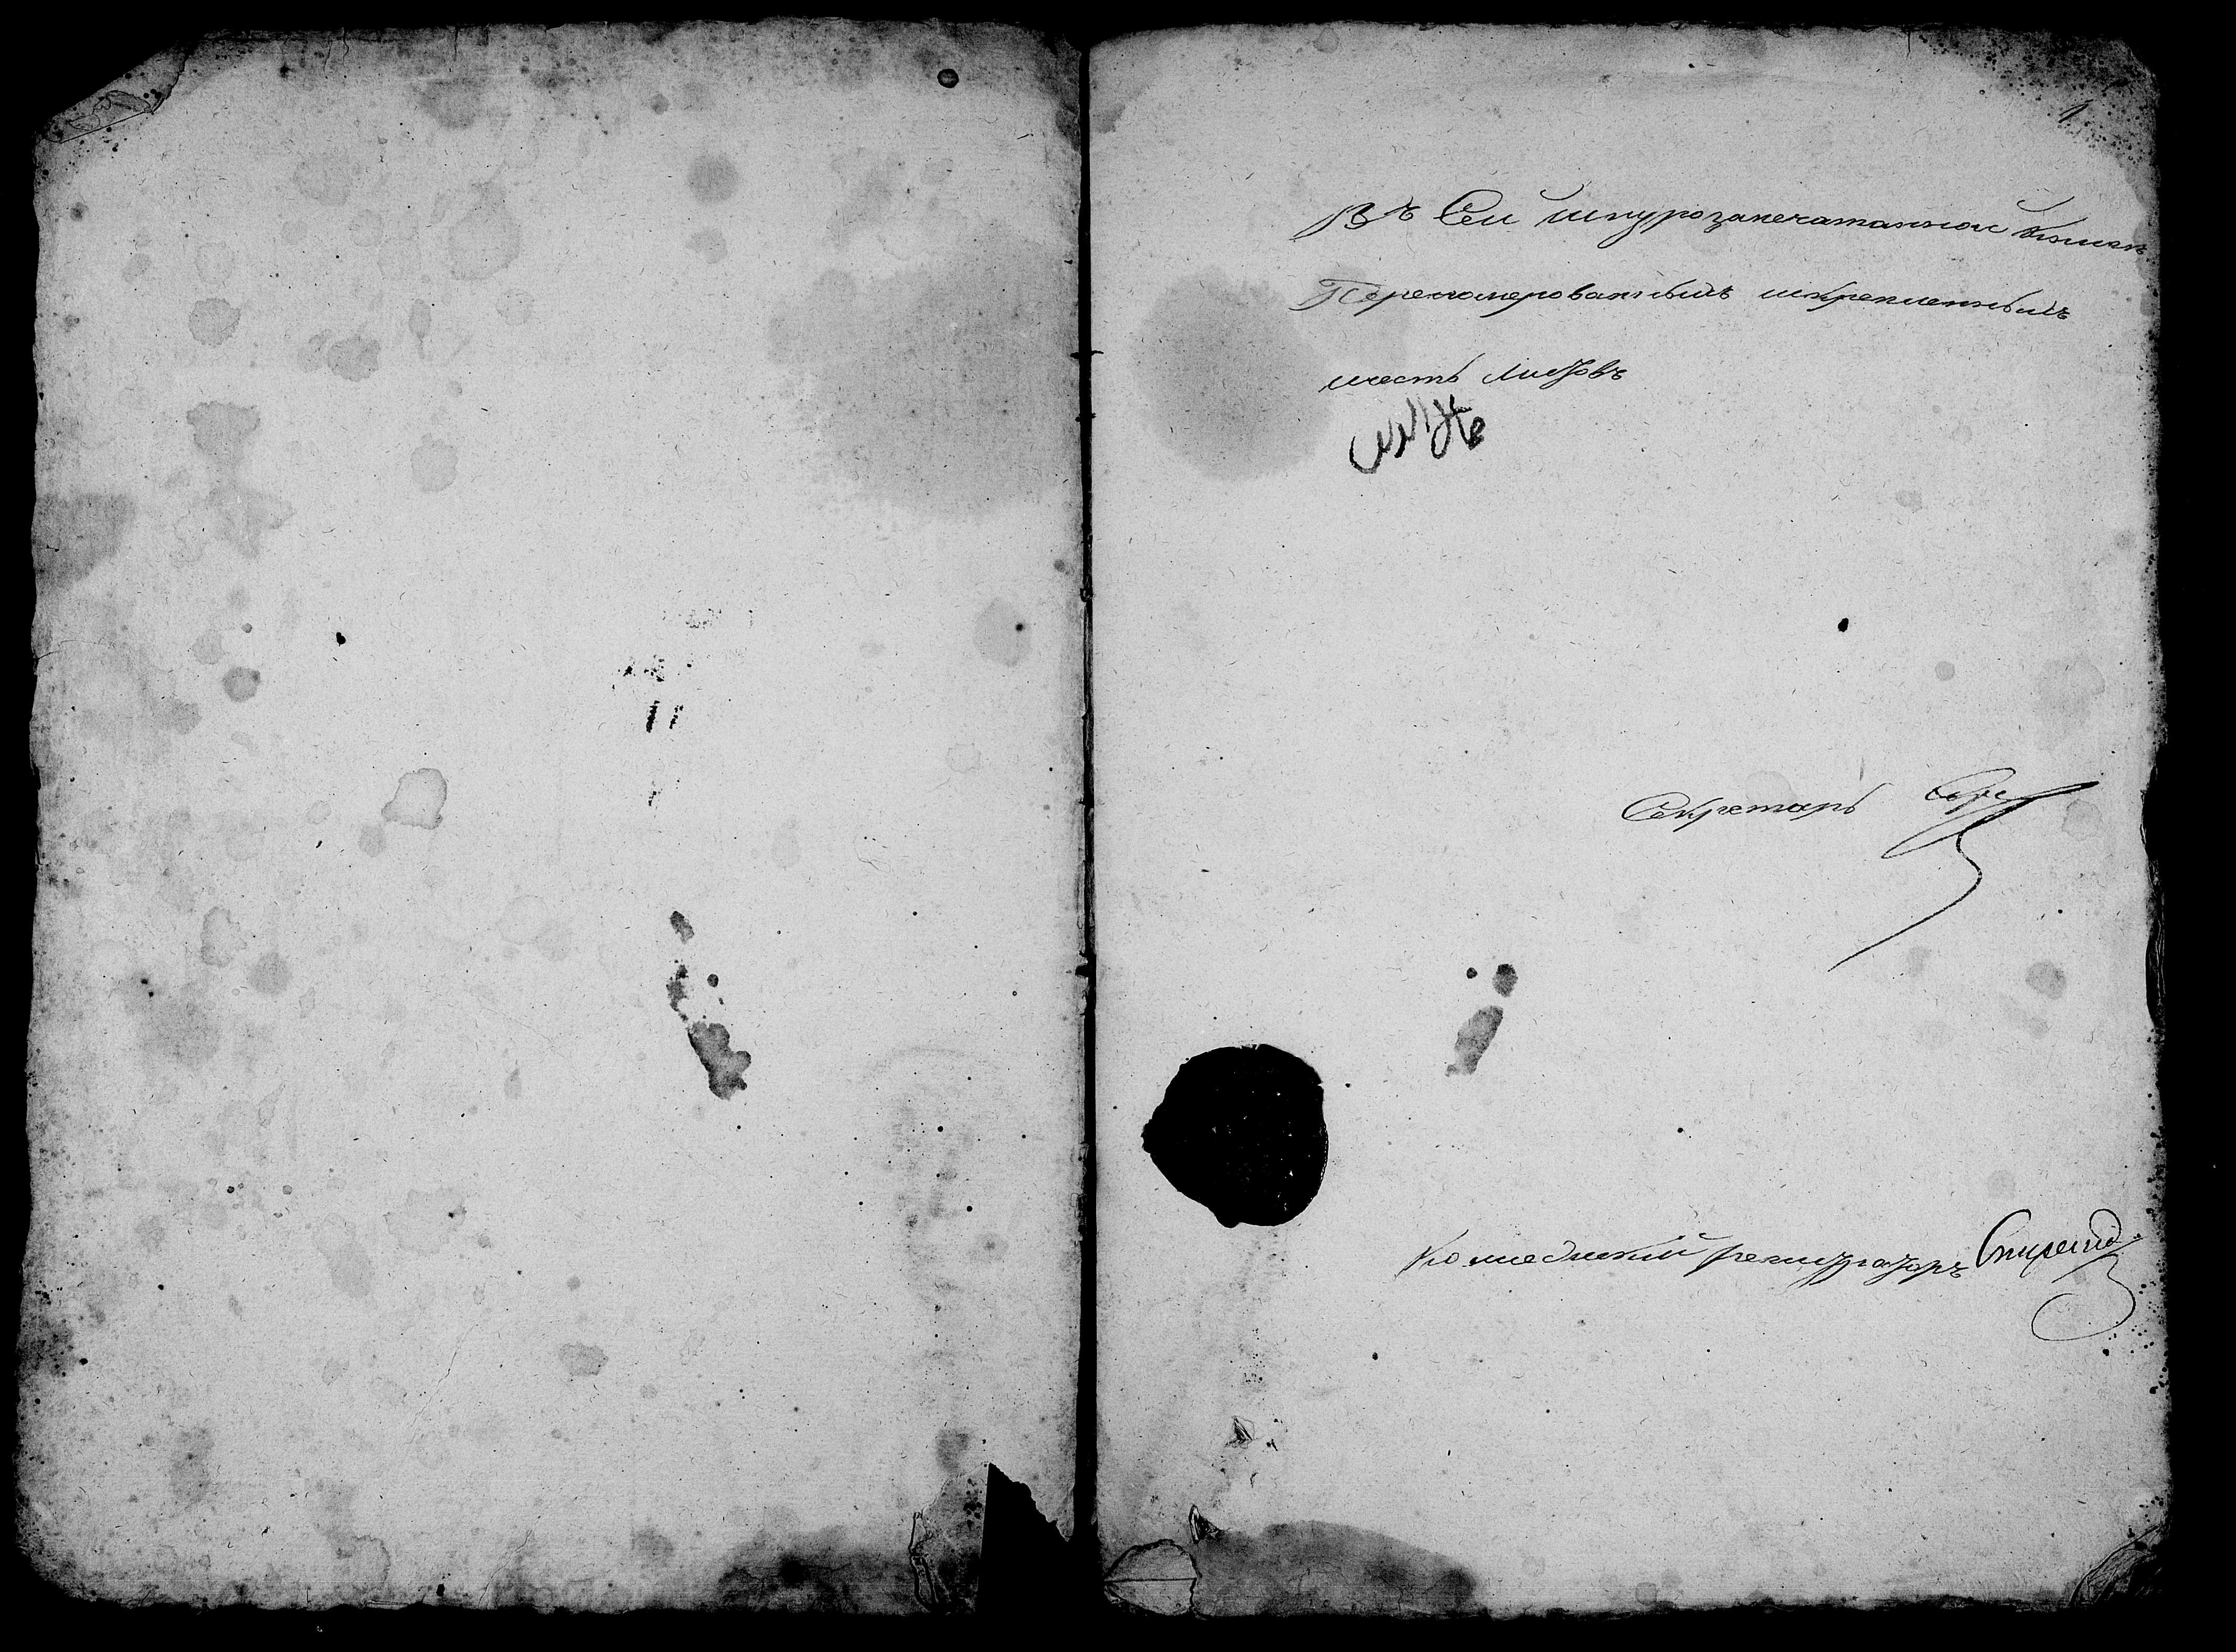 1
Въ Сей шнурозапечатанной книгѣ
Переномерованныхъ искрепленныхъ
шесть листовъ
Секретарь
Коллежскій регистраторъ